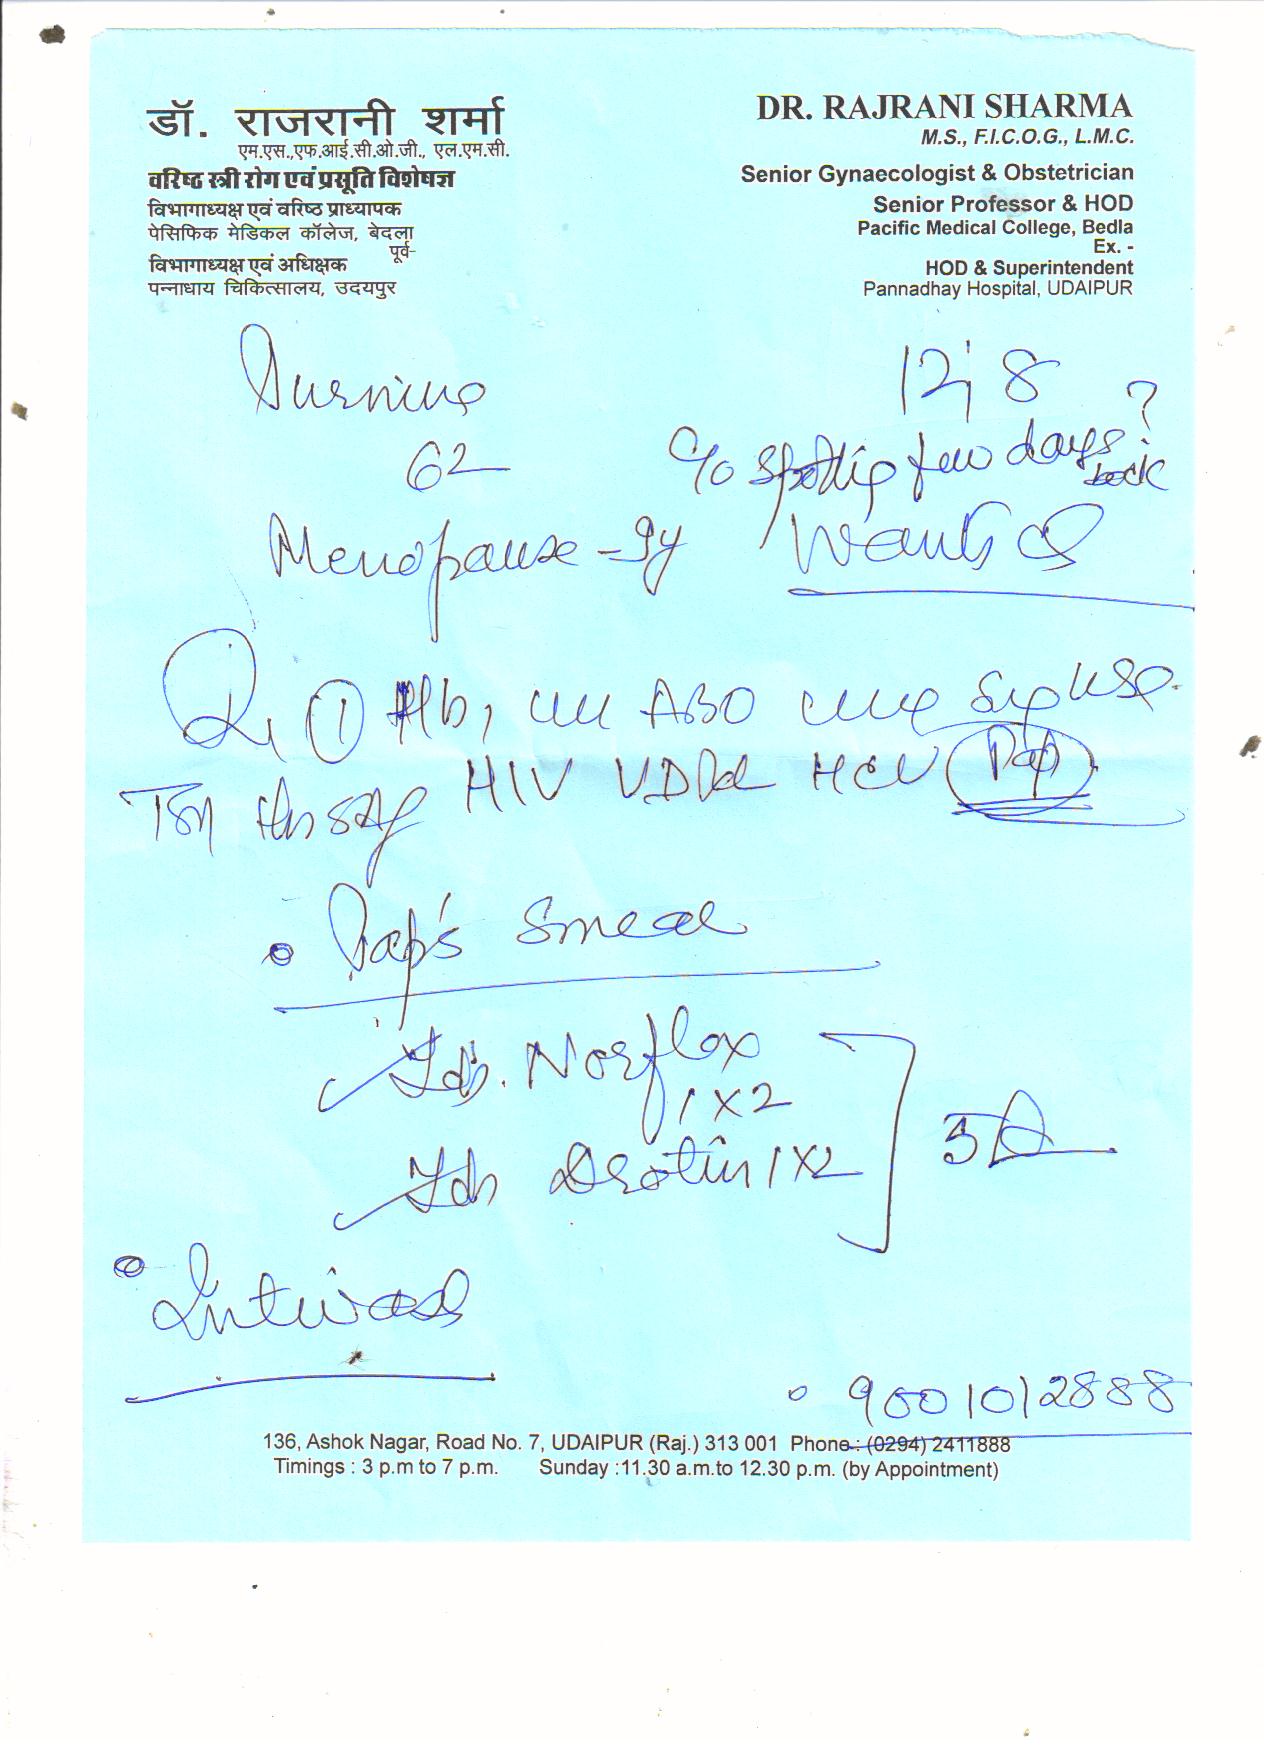 डॉ. राजरानी शर्मा
एम.एस.,एफ.आई.सी.ओ.जी., एल.एम.सी.
वरिष्ठ स्त्री रोग एवं प्रसूति विशेषज्ञ
विभागाध्यक्ष एवं वरिष्ठ प्राध्यापक
पेसिफिक मेडिकल कॉलेज, बेदला
पूर्व-
विभागाध्यक्ष एवं अधिक्षक
पन्नाधाय चिकित्सालय, उदयपुर
DR. RAJRANI SHARMA
M.S., F.I.C.O.G., L.M.C.
Senior Gynaecologist & Obstetrician
Senior Professor & HOD
Pacific Medical College, Bedla
Ex. -
HOD & Superintendent
Pannadhay Hospital, UDAIPUR
12/8
62
C/o spotting few days back ?
Menopause - 9y
Wants
① Hb, ABO
HIV VDRL HCV Pap
Pap's Smear
Tab. Norflox
1 x 2
Tab Drotin 1 x 2
5 D
Intiwash
9001012888
136, Ashok Nagar, Road No. 7, UDAIPUR (Raj.) 313 001 Phone : (0294) 2411888
Timings : 3 p.m to 7 p.m. Sunday :11.30 a.m.to 12.30 p.m. (by Appointment)